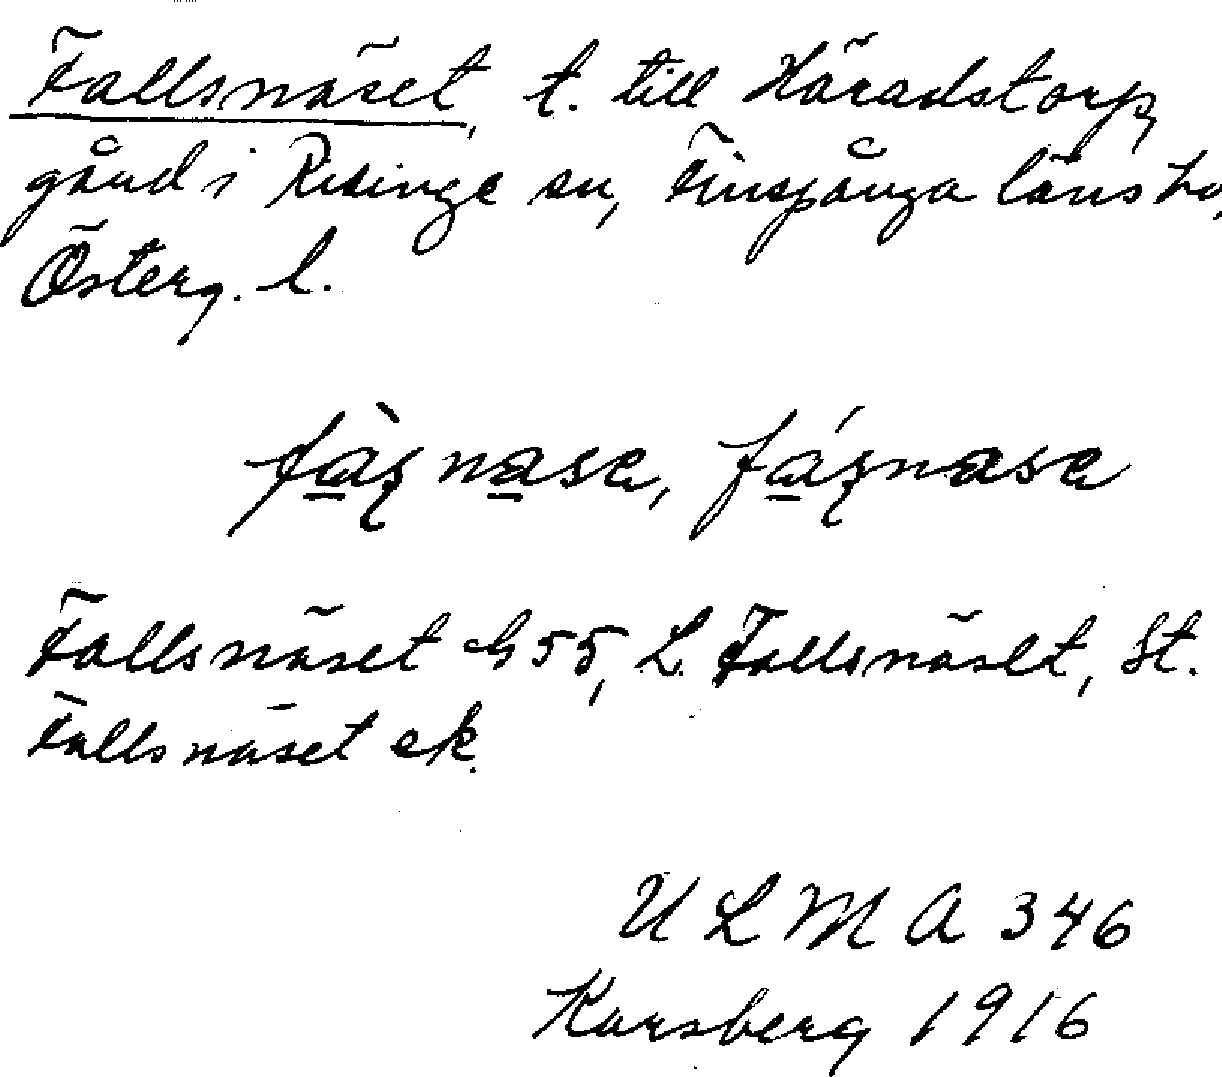 Fallsnäset, t. till Häradstorp,
gård i Risinge sn, Finspånga läns hd,
Österg. l.
Fallsnäset G55, L. Fallsnäset, St.
Fallsnäset ek.
ULMA 346
Karsberg 1916